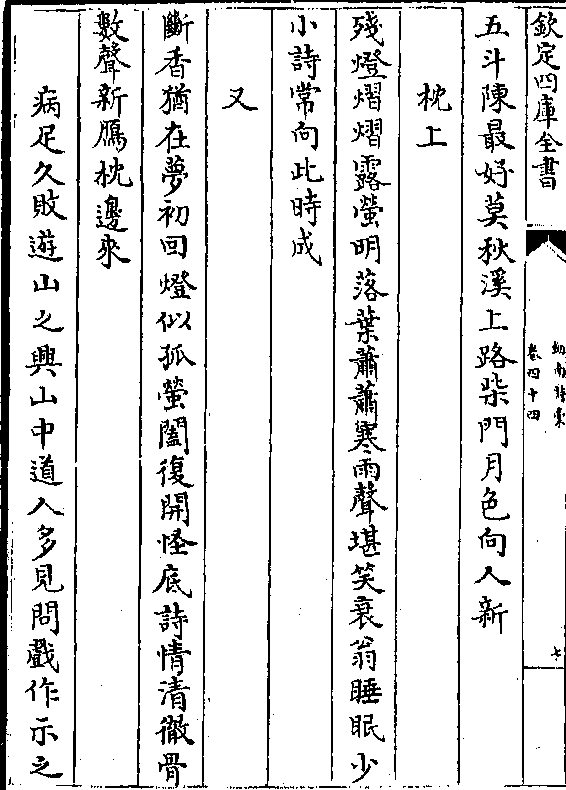 欽定四庫全書
劍南詩槀
卷四十四
七
五斗陳最好莫秋溪上路柴門月色向人新
枕上
殘燈熠熠露螢明落葉蕭蕭寒雨聲堪笑衰翁睡眠少
小詩常向此時成
又
斷香猶在夢初回燈似孤螢闔復開怪底詩情清徹骨
數聲新鴈枕邊來
病足久敗遊山之興山中道人多見問戲作示之